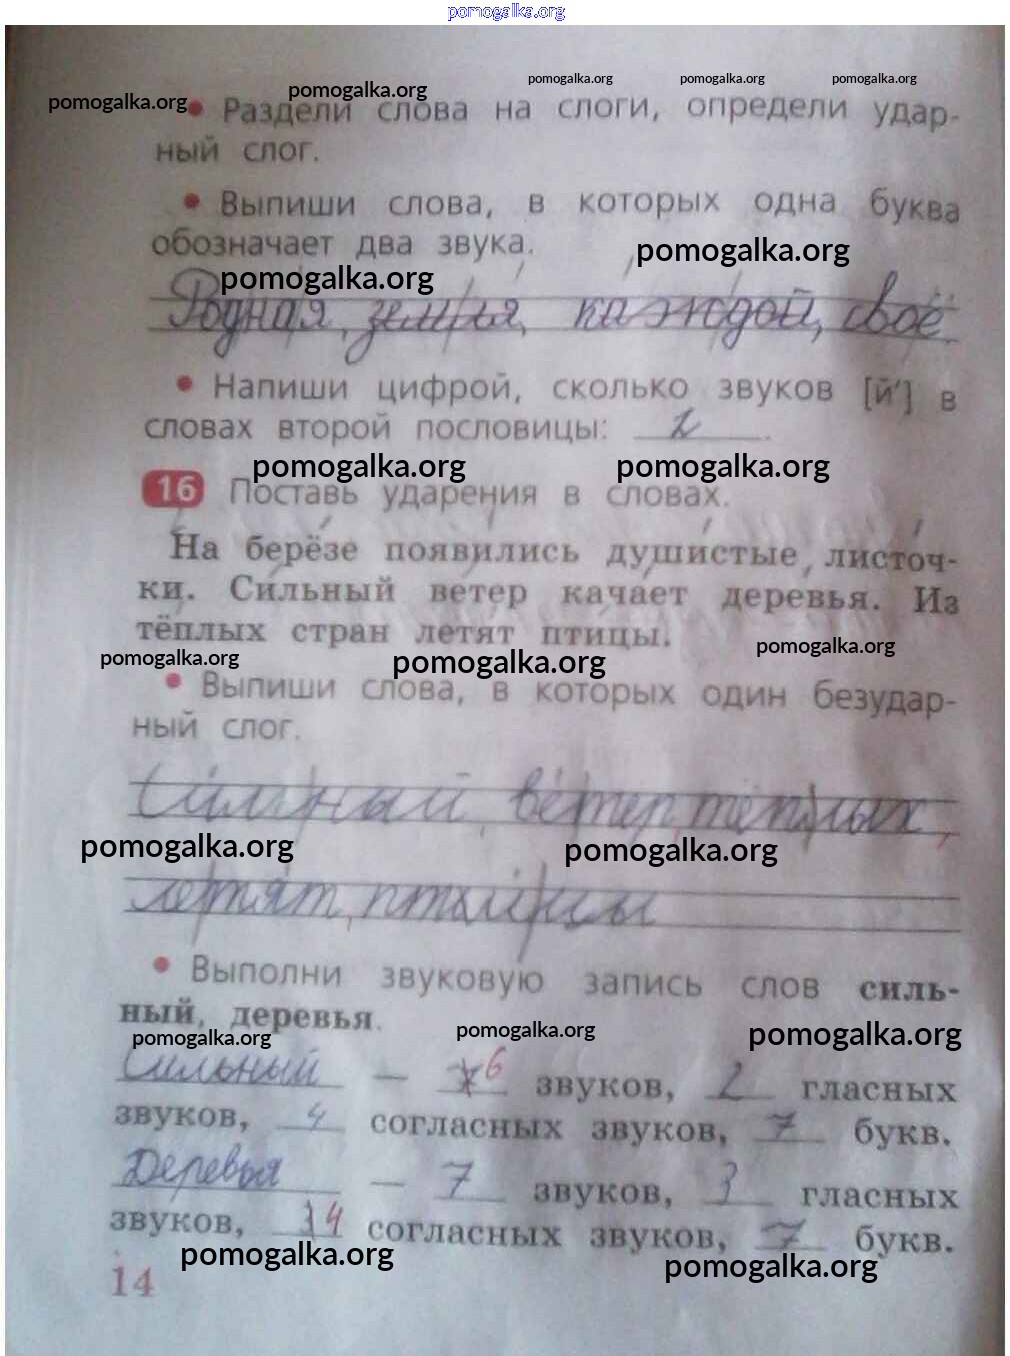 pomogalka.org
pomogalka.org pomogalka.org pomogalka.org
pomogalka.org pomogalka.org
• Раздели слова на слоги, определи удар-
ный слог.
• Выпиши слова, в которых одна буква
обозначает два звука.
pomogalka.org
pomogalka.org
Родная, земля, каждой, своё
• Напиши цифрой, сколько звуков [й'] в
словах второй пословицы: 2.
pomogalka.org pomogalka.org
16 Поставь ударения в словах.
На берёзе появились душистые листоч-
ки. Сильный ветер качает деревья. Из
тёплых стран летят птицы.
pomogalka.org pomogalka.org pomogalka.org
• Выпиши слова, в которых один безудар-
ный слог.
Сильный, ветер, тёплых,
pomogalka.org pomogalka.org
летят, птицы
• Выполни звуковую запись слов силь-
ный, деревья.
pomogalka.org pomogalka.org pomogalka.org
Сильный — 6 звуков, 2 гласных
звуков, 4 согласных звуков, 7 букв.
Деревья — 7 звуков, 3 гласных
звуков, 4 согласных звуков, 7 букв.
pomogalka.org pomogalka.org
14